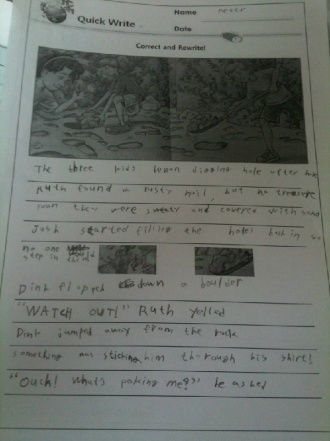 Quick Write
Name peter
Date
Correct and Rewrite!
The three kids began digging hole after hole
Ruth found a rusty nail, but no treasure
soon they were sweaty and covered with sand
Josh started filling the holes back in so
no one would
step in them
Dink flopped down a boulder
"WATCH OUT!" Ruth yelled
Dink jumped away from the rock
something was sticking him thorough his shirt!
"Ouch! whats poking me?" he asked